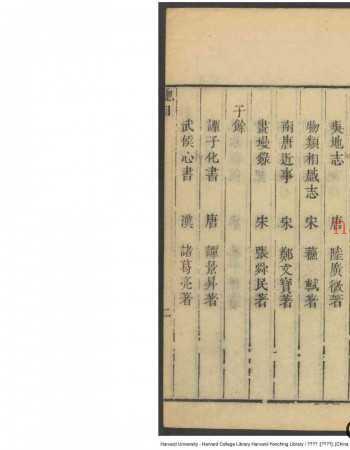 吳地志 唐 陸廣微著
物類相感志 宋 蘓軾著
南唐近事 宋 鄭文寶著
畫墁錄 宋 張舜民著
子餘
譚子化書 唐 譚景昇著
武候心書 漢 諸葛亮著
總目
二
Harvard University - Harvard College Library Harvard-Yenching Library / ???? :[????]; [China